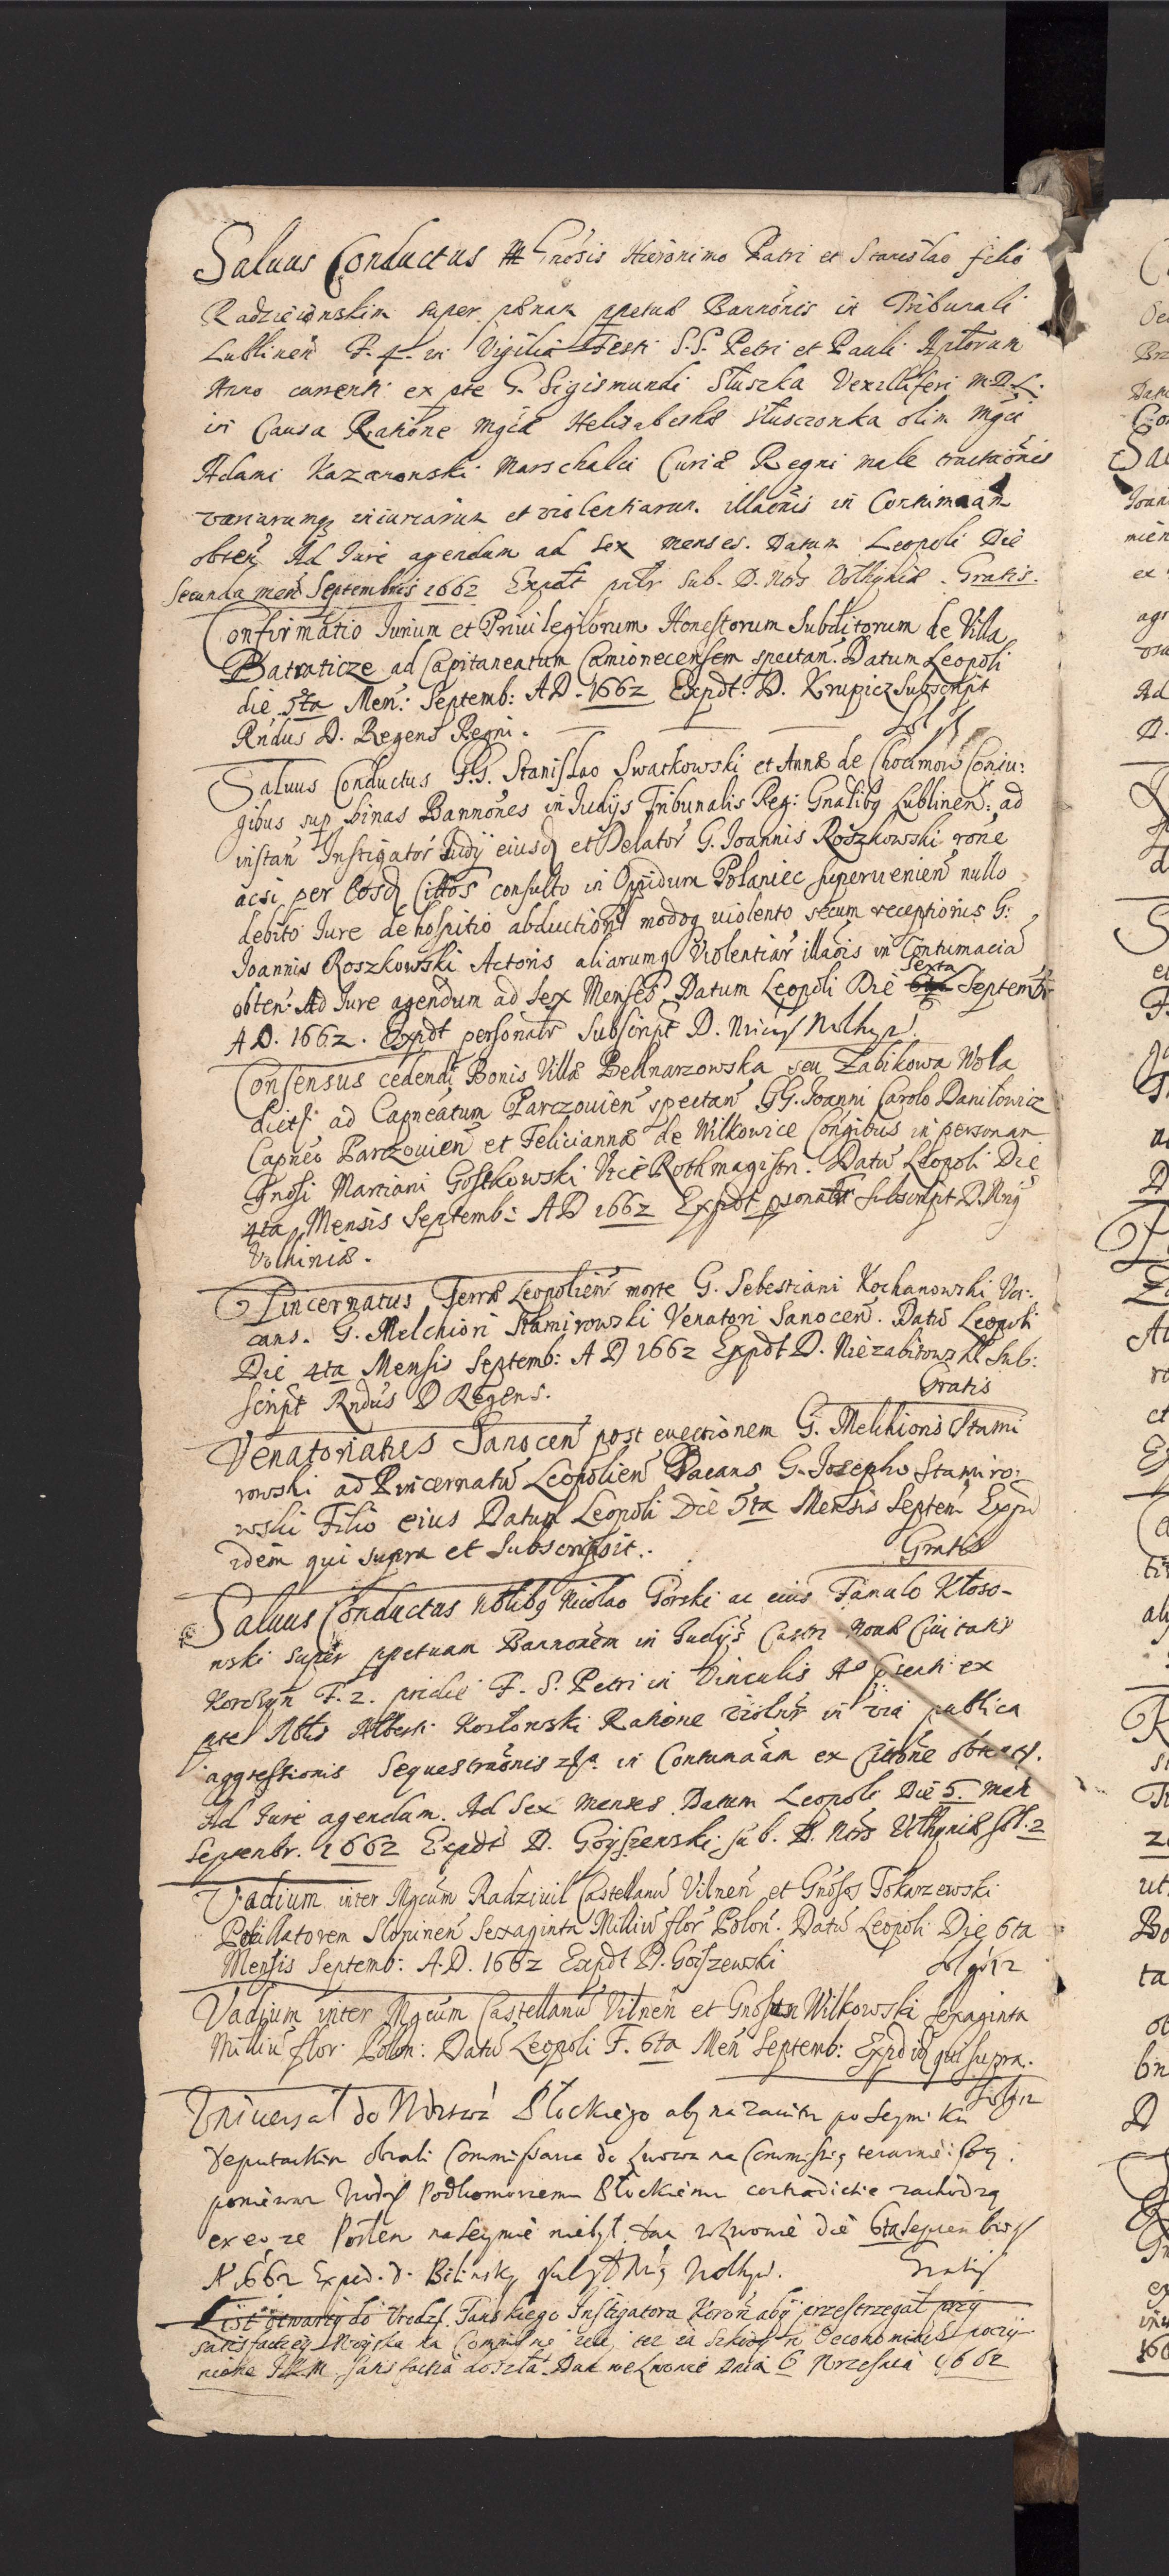 Saluus Conductus Gnosis Hieronimo Patri et Stanislao filio
Radzieiowskim super pœnam ppetuæ Bannonis in Tribunali
Lublinen F. 4. in Vigilia Festi S.S. Petri et Pauli Aplorum
Anno currenti ex pte G. Sigismundi Słuszka Vexilliferi M.D.L.
in Causa Ratione Mgcæ Helisabethæ Słusczonka olim Mgci
Adami Kazanowski Marschalci Curiæ Regni male tractaonis
variarumq iniuriarum et violentiarum illaonis in Contumaam
obten Ad Iure agendum ad sex menses. Datum Leopoli Die
Secunda men Septembris 1662 Expdt patr sub. D. Nots Volhyniæ. Gratis.
Confirmatio Iurium et Priuilegiorum Honestorum Subditorum de Villa
Batiaticze ad Capitaneatum Camionecensem spectan. Datum Leopoli
die 5ta Men: Septemb: AD. 1662 Expdt: D. Krupicz Subscripsit
Rndus D. Regens Regni.
Saluus Conductus G.G. Stanislao Swatkowski et Annæ de Chocimow Coniu:
gibus sup binas Bannones in Iudijs Tribunalis Reg: Gnalibq Lublinen: ad
instan Instigator Iudij eiusd et Delator G. Ioannis Roszkowski rone
acsi per Eosd Cittos consulto in Oppidum Połaniec superuenien nullo
debito Iure de hospitio abductionis modoq uiolento secum receptionis G:
Ioannis Roszkowski Actoris aliarumq Violentiar illaois in Contumacia
obten: Ad Iure agendum ad sex Menses Datum Leopoli Die sexta Septembr
A D. 1662. Expdt personatr Subscript D.
Consensus cedendi Bonis Villæ Bednarzowska seu Zabikowa Wola
dictis ad Capneatum Parczouien spectan GG. Ioanni Carolo Daniłowicz
Capneo Parczouien et Feliciannæ de Wilkowice Congibus in personam
Gnosi Martiani Gostkowski Vice Rothmagistri. Datu Leopoli Die
4ta Mensis Septemb: AD 1662 Expdt psonatr Subscripsit D. Nrij
Volhiniæ.
Pincernatus Terræ Leopolien morte G. Sebestiani Kochanowski Va:
cans. G. Melchiori Stamirowski Venatori Sanocen. Datu Leopoli
Die 4ta Mensis Septemb: A D 1662 Expdt D. Niezabitowski Sub:
script Rndus D Regens.
Gratis
Venatoriatus Sanocen post euectionem G. Melchioris Stami
rowski ad Pincernatu Leopolien Vacans G. Iosepho Stamiro:
wski Filio eius Datum Leopoli Die 5ta Mensis Septem Expd
idem qui supra et Subscripsit.
Gratis
Saluus Conductus Nblibq Nicolao Gorski ac eius Famulo Kłoso-
wski super ppetuam Bannonem in Iudijs Castri Nouæ Ciuitatis
Korczyn F. 2. pridie F. S. Petri in Vinculis Ao psenti ex
pte Nblis Alberti Kozłowski Ratione violnr in via publica
aggressionis Sequestraonis in Contumaam ex Citaone obtent.
Ad Iure agendam. Ad Sex menses Datum Leopoli Die 5. Men
Septembr. 1662 Expdt D. Goyszewski sub. D. Nots Volhyniæ fl. 2
Vadium inter Mgcum Radziuil Castellanu Vilnen et Gnosos Tokarzewski
Pocillatorem Slonimen Sexaginta Milliu flor Polon. Datu Leopoli Die 6ta
Mensis Septemb: A.D. 1662 Expdt D. Goszewski
Vadium inter Mgcum Castellanu Vilnen et Gnosum Wilkowski sexaginta
Milliu flor Polon: Datu Leopoli F. 6ta Men Septemb: Expd id qui supra.
Vniuersał do Płockiego aby na po Seymiku
deputackim obrali Commissarza do Lwowa na Commissią
poniewaz Podkomorzemu Płockiemu contradictie zachodzą
ex eo, ze Posłem na Seymie niebył. Dan we Lwowie die 6ta Septembris
A 1662 Exped. d. Bilinsky
Gratis
List otwarty do Vrodz. Tanskiego Instigatora Koron aby przestrzegał przy
satisfactiey Woyska na Commissiey zeby tez za szkody w Oeconomiach poczy
nione I.K.M. satisfactia doszła. Dan we Lwowie Dnia 6 Wrzesnia 1662